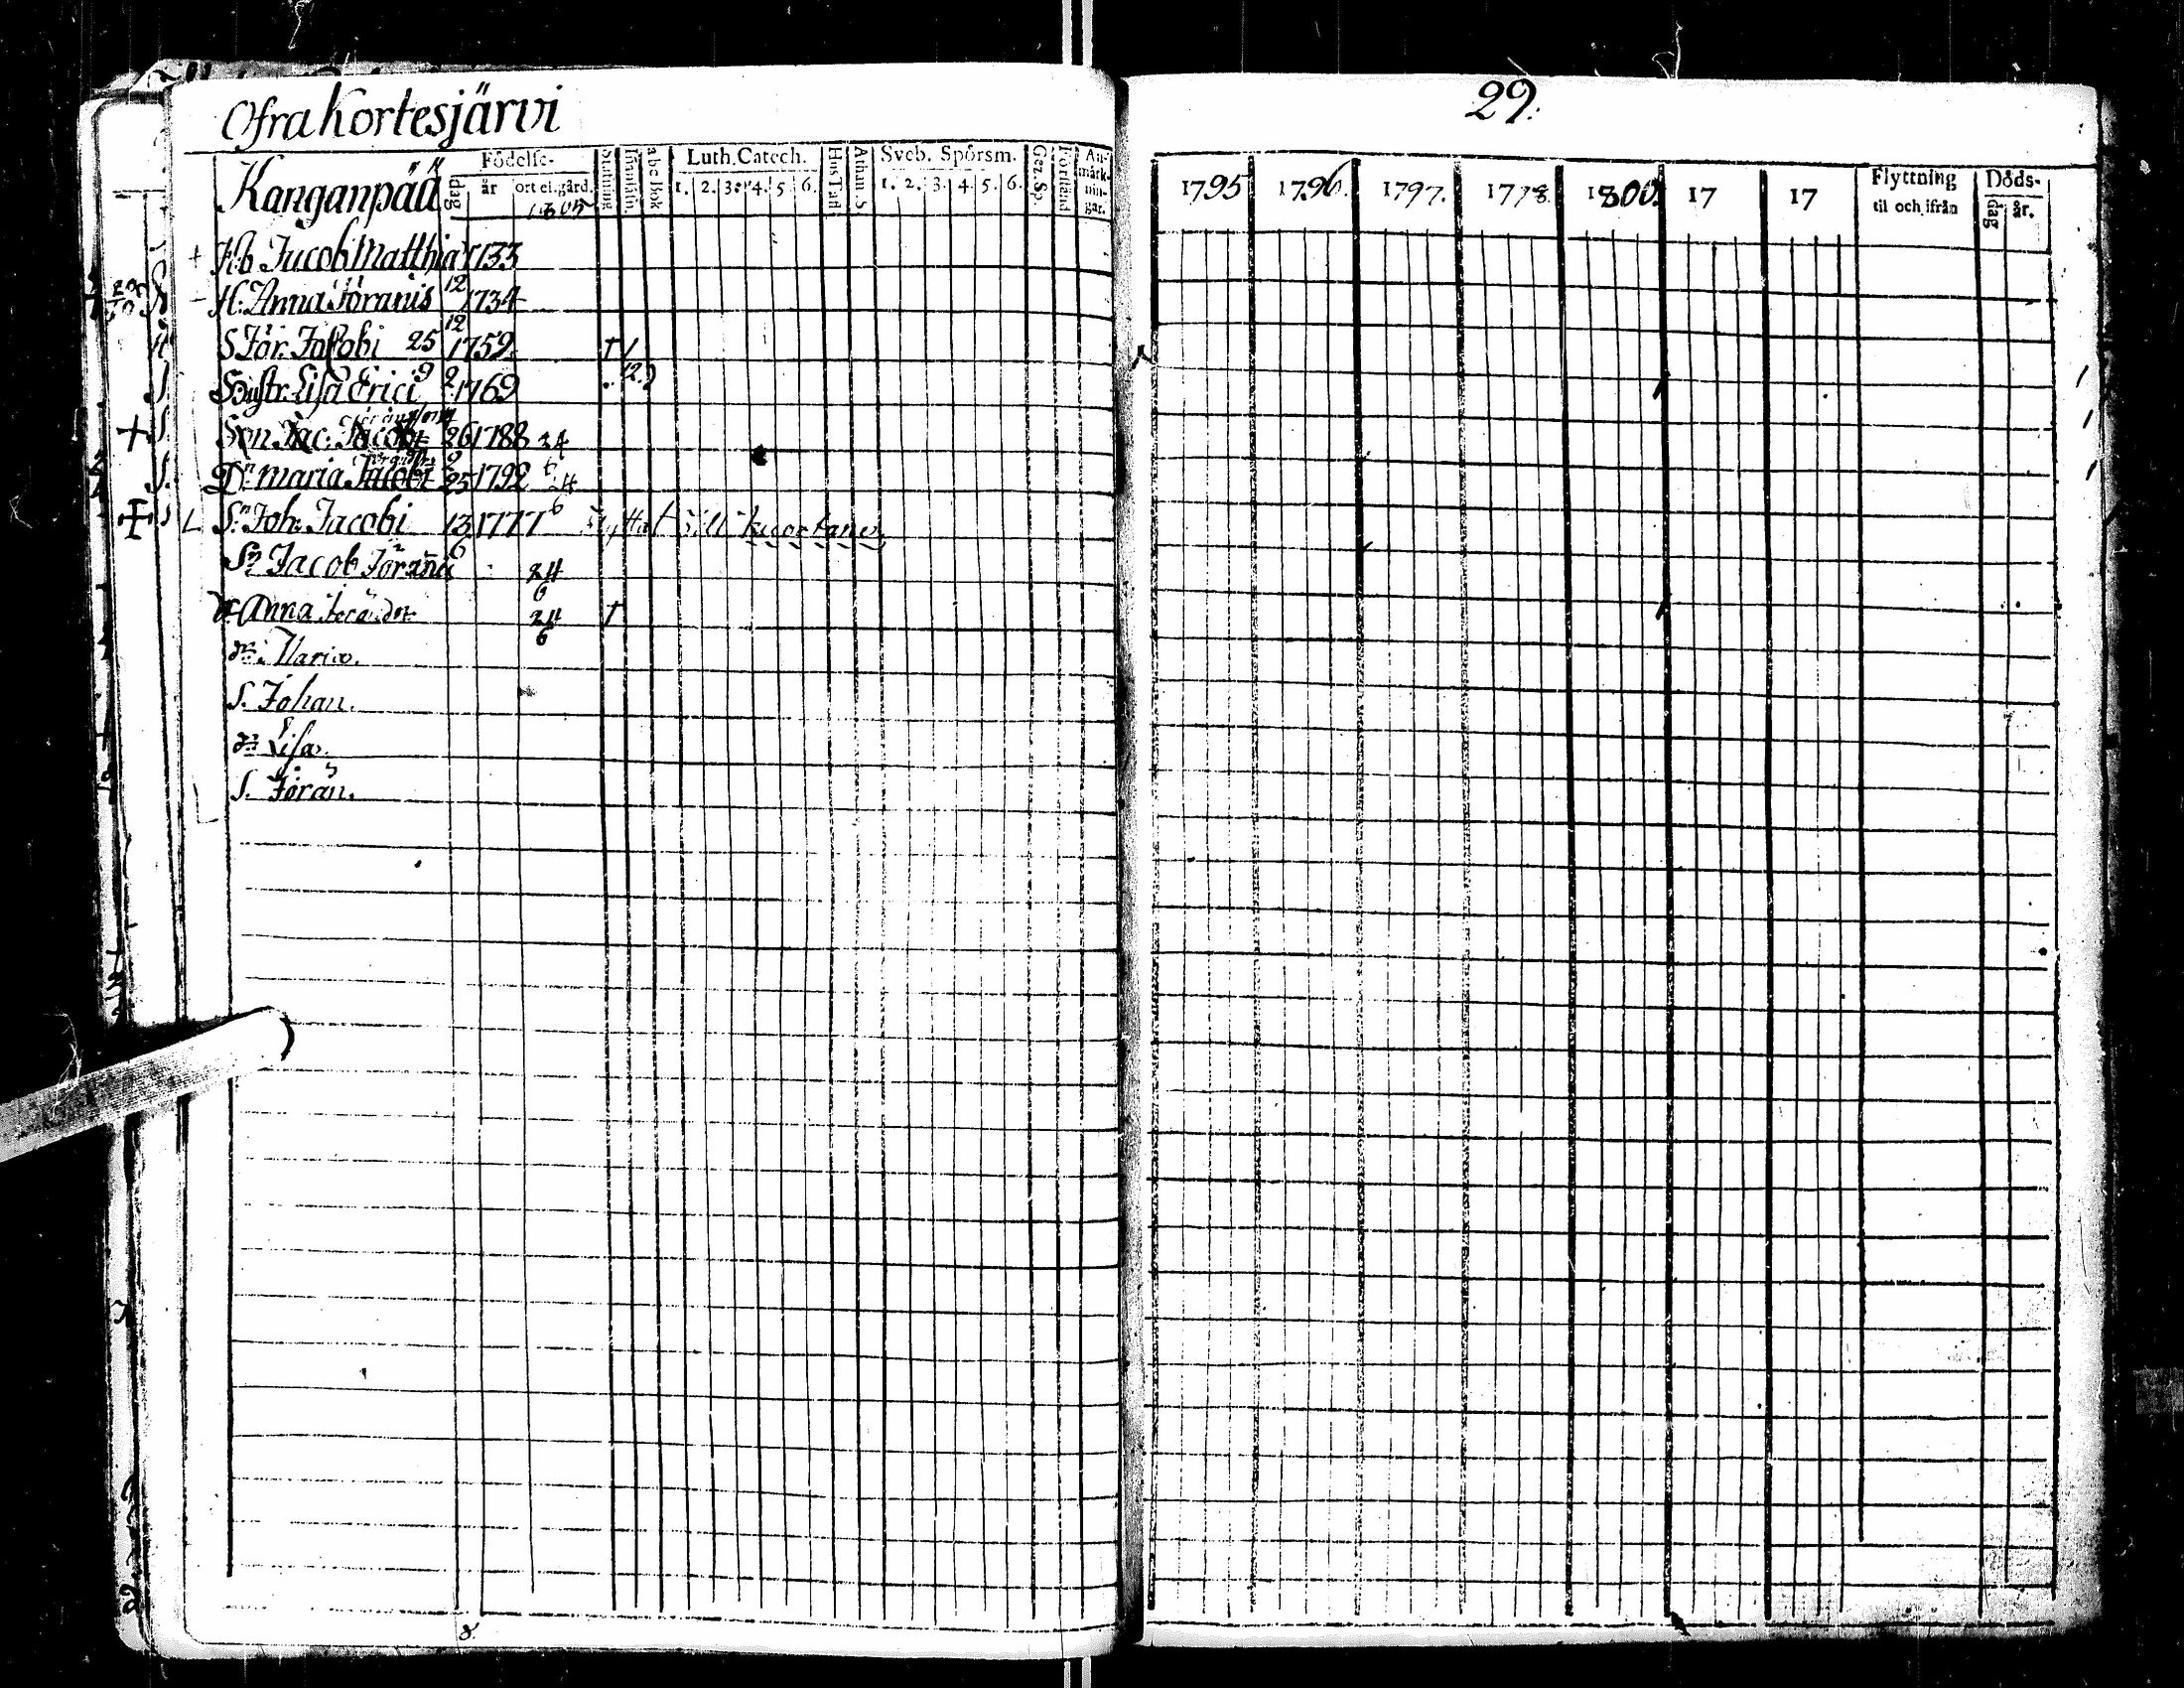 Ofra Kortesjärvi
29.
Kanganpää
Födelse-
dag år ort el. gård.
1805
abc Bok
Luth. Catech.
1. 2. 3. 4. 5. 6.
Hus Tafl.
Athan. S
Sveb. Spörsm.
1. 2. 3. 4. 5. 6.
Gez. Sp.
Förstånd
An-
märk-
nin-
gar.
1795 1796. 1797. 1798. 1800. 17 17
Flyttning
til och ifrån
Döds-
dag år.
Hb Jacob Matthiæ 1733
H: Anna Jöranis 12 1734
S Jör. Jacobi 25 12 1759
Hustr. Lisa Erici 9 2 1769
Son Jac. Jacobi 26 1788 24
Dr Maria Jacobi 25 9 1792 6 24
Sn Joh. Jacobi 13 1777 6 flyttat till kuortane
Sn Jacob Jörani 6 24
6
dr Anna 24
6
dr. Maria.
S. Johan.
dr Lisa.
S. Jöran.